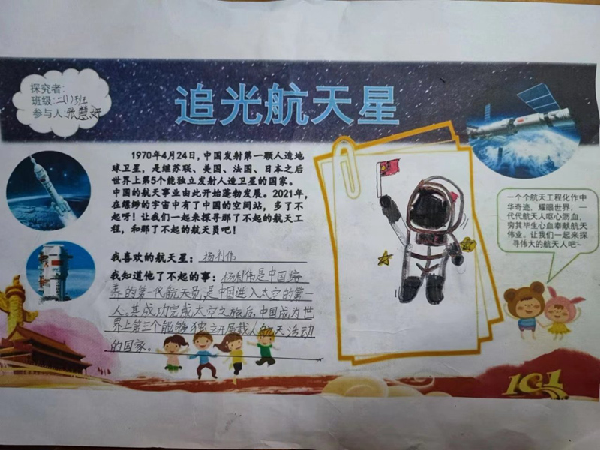 追光航天星
探究者:
班级:二(1)班
参与人:
1970年4月24日,中国发射第一颗人造地
球卫星,是继苏联、美国、法国、日本之后
世界上第5个能独立发射人造卫星的国家。
中国的航天事业由此开始蓬勃发展。2021年,
在缥缈的宇宙中有了中国的空间站,多了不
起呀!让我们一起来探寻那了不起的航天工
程,和那了不起的航天员吧!
我喜欢的航天星:杨利伟
我知道他了不起的事:杨利伟是中国培
养的第一代航天员,是中国进入太空的第一
人,其成功完成太空之旅后,中国成为世
界上第三个能够独立开展载人航天活动
的国家。
一个个航天工程化作中
华奇迹,耀眼世界,一
代代航天人呕心沥血,
穷其毕生心血奉献航天
伟业,让我们一起来探
寻伟大的航天人吧~
101